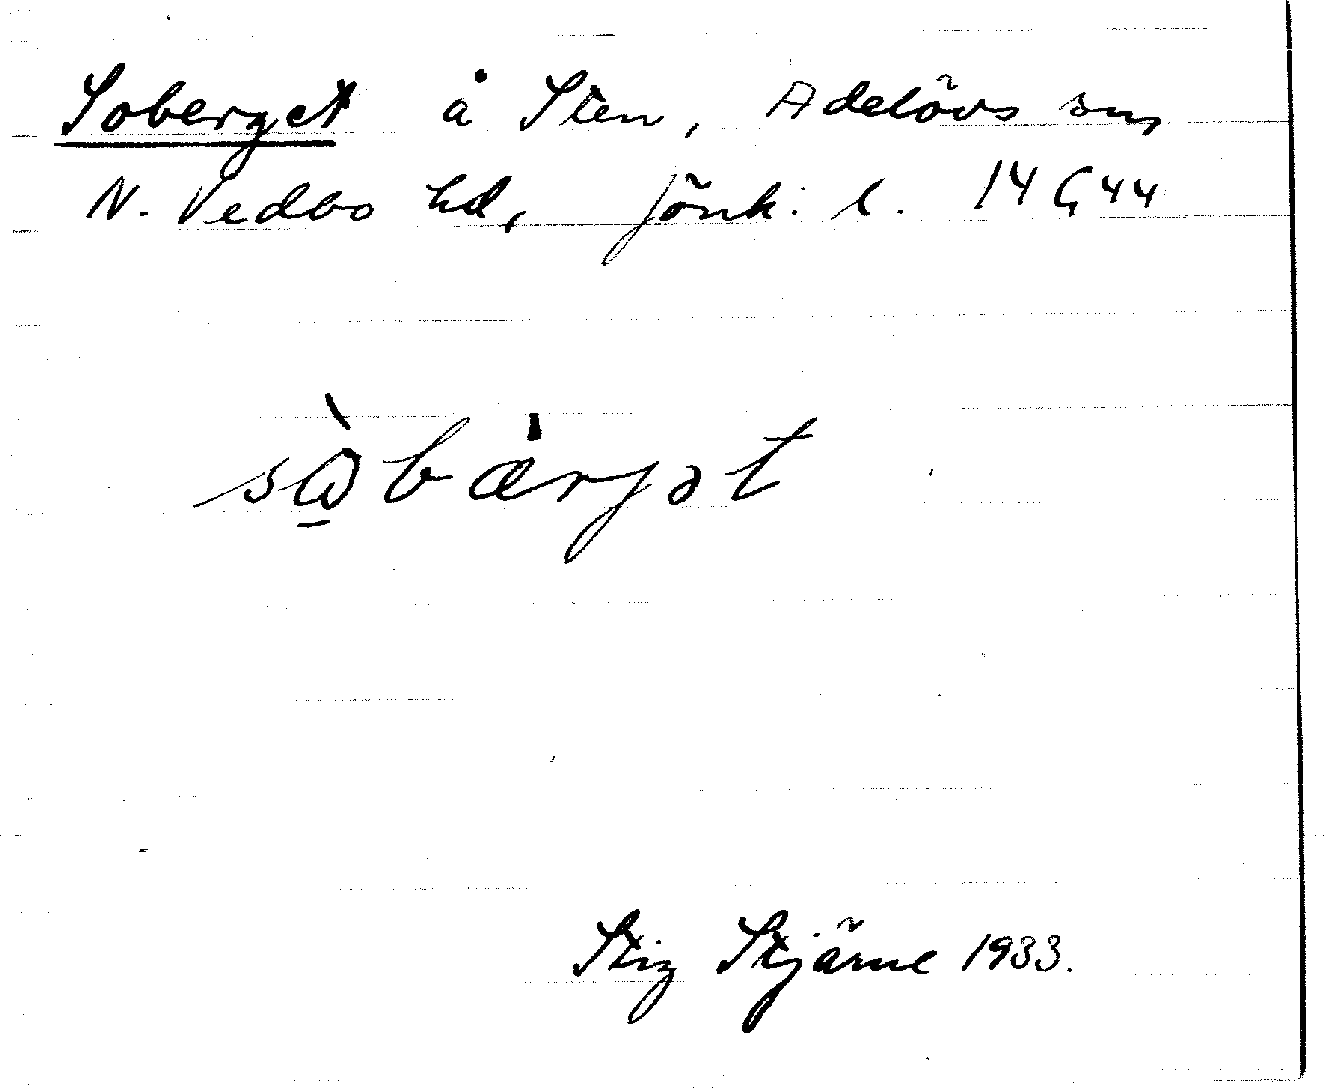 Soberget å Sten, Adelövs sn,
N. Vedbo hd, Jönk. l. 14 G 44
sàbærjət
Stig Stjärne 1933.